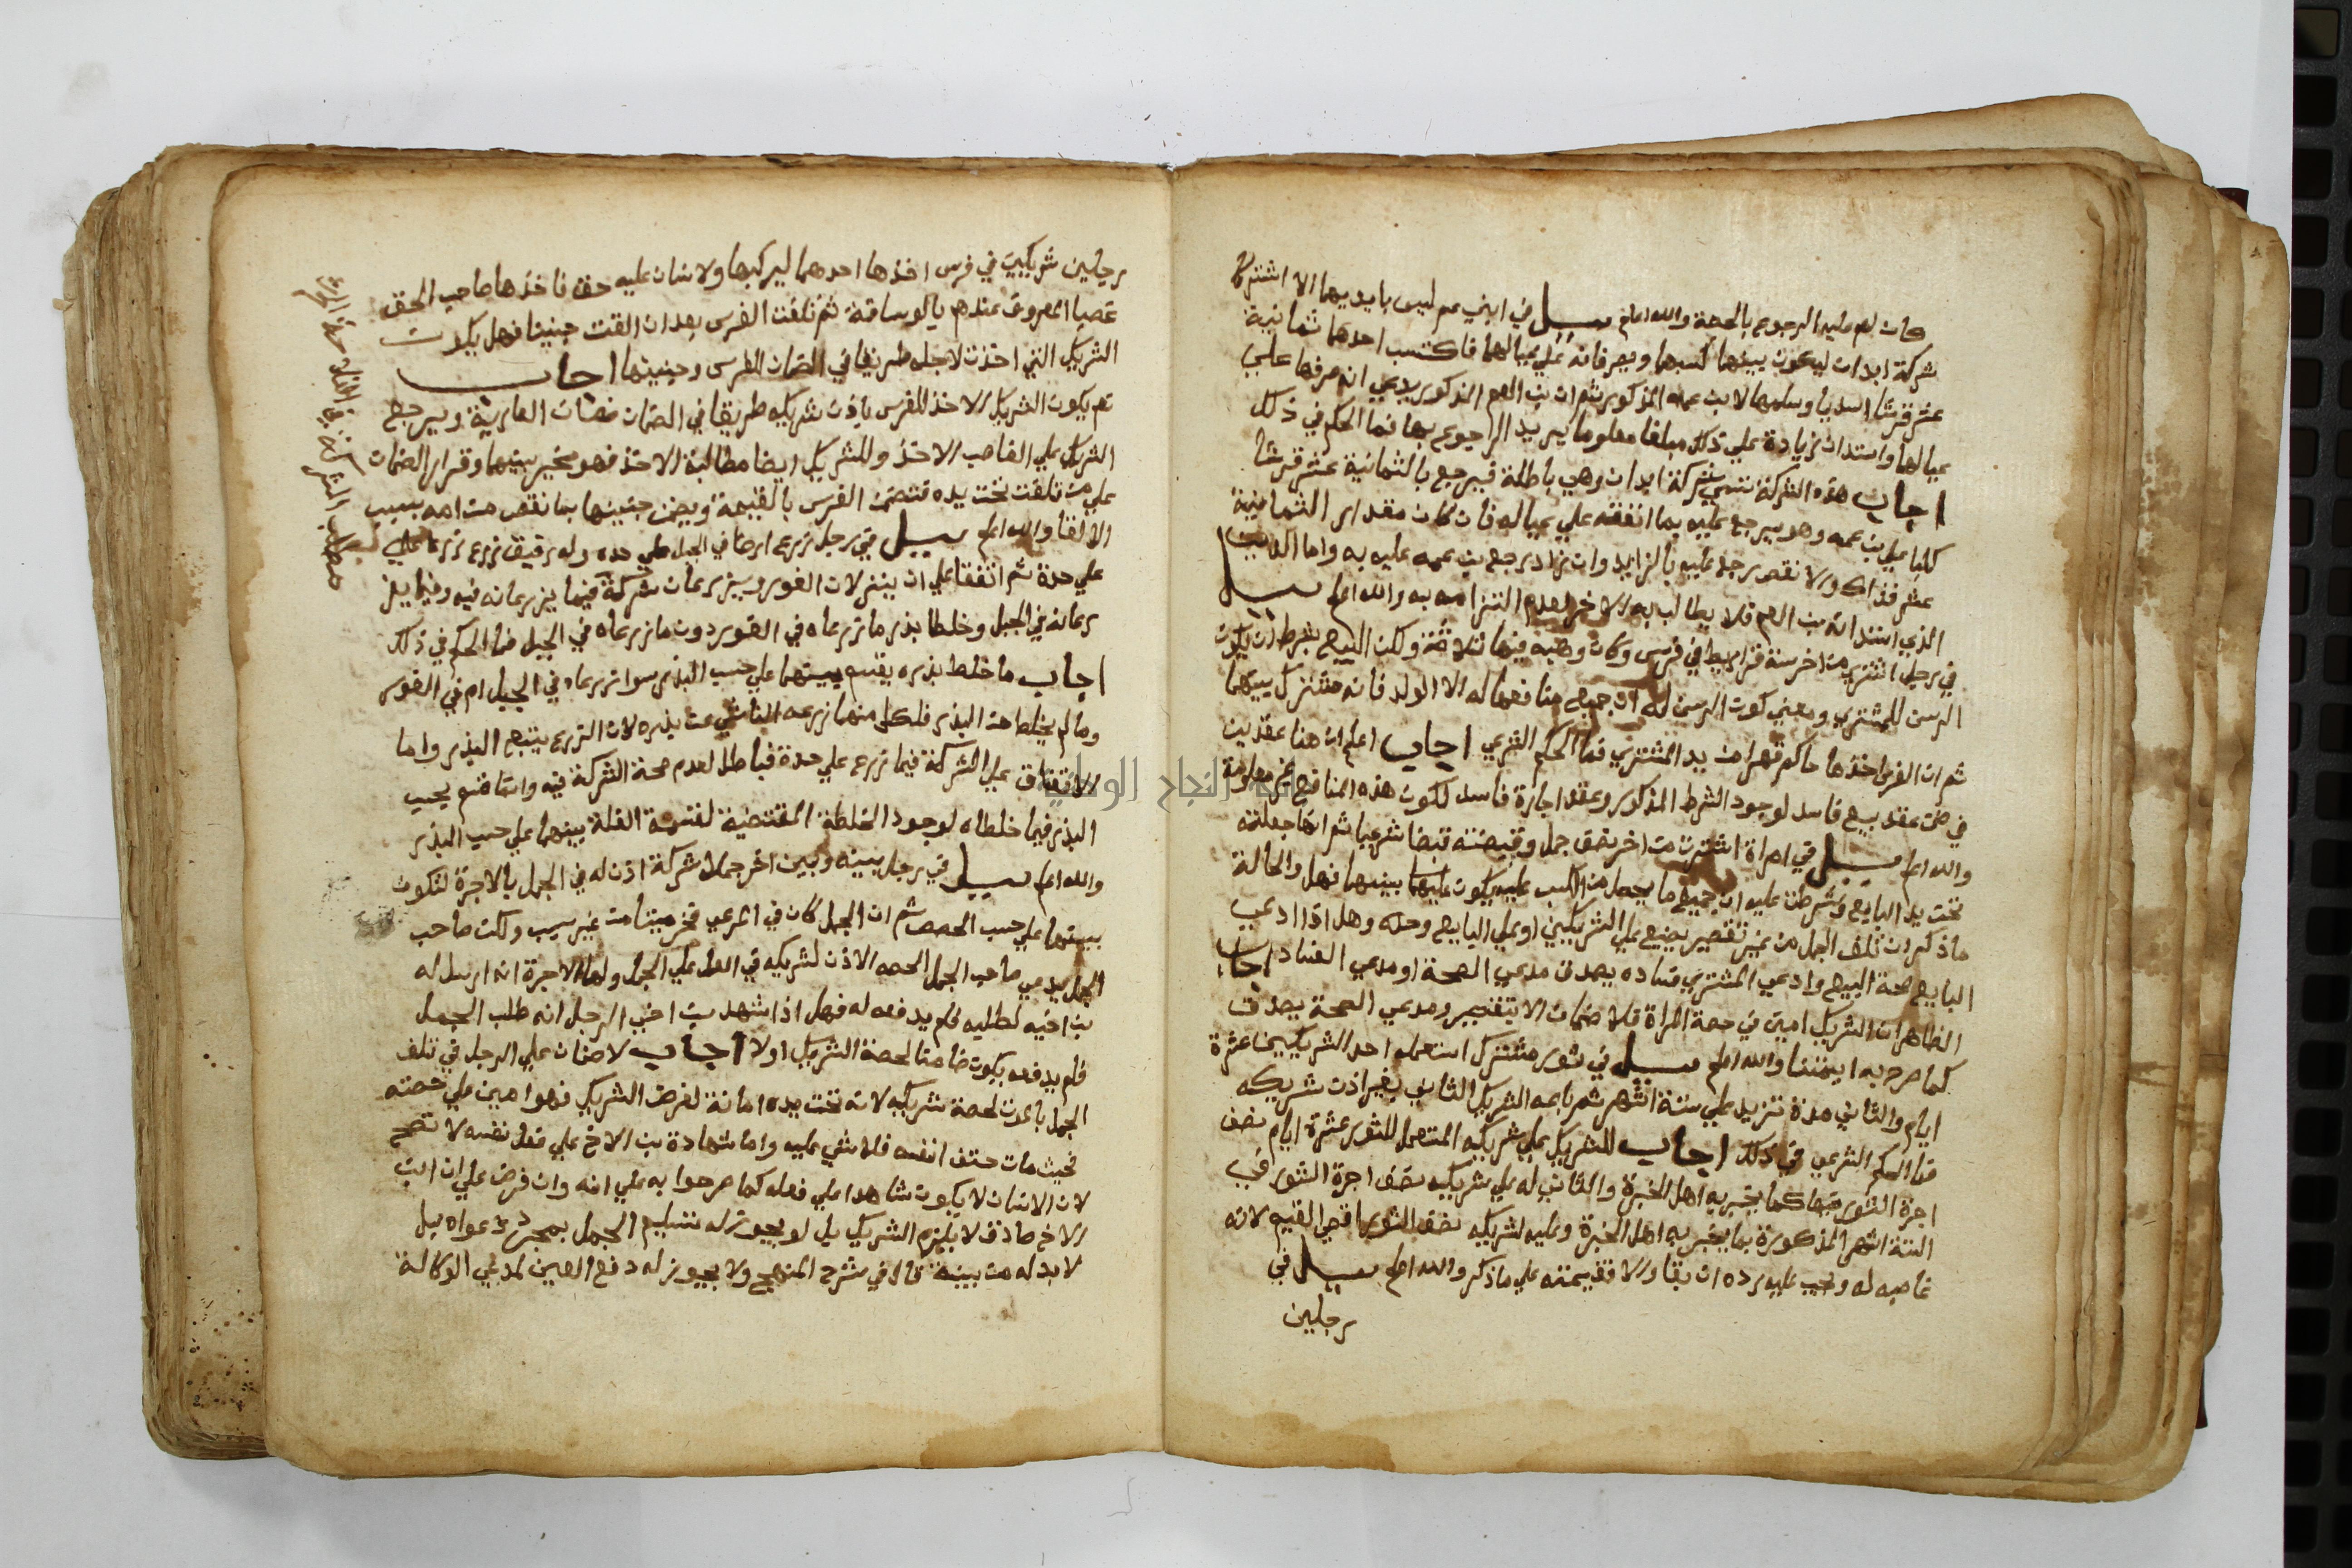 كان له عليه الرجوع بالحصة والله اعلم سيل في ابني عم ليس بايديهما الا اشتركا
شركة ابدان ليكون بينهما كسبهما ويصرفانه علي عيالهما فاكتسب احدهما ثمانية
عشر قرشا اسديا وسلمها لابن عمه المذكور ثم ان بن العم المذكور يدعي انه صرفها علي
عيالهما واستدان زيادة علي ذلك مبلغا معلوما يريد الرجوع بها فما الحكم في ذلك
اجاب هذه الشركة تسمي شركة ابدان وهي باطلة فيرجع بالثمانية عشر قرشا
كلها علي بن عمه وهو يرجع عليه بما انفقه علي عياله فان كان مقدار الثمانية
عشر فذاك والا نقص رجع عليه بالزايد وان زاد رجع بن عمه عليه به واما الدين
الذي استدانه بن العم فلا يطالب به الاخر لعدم التزامه به والله اعلم سيل
في رجل اشتري من اخر ستة قراريط في فرس وكان وهبه فيها ثلاثة ولكن البيع بشرط ان يكون
الرسن للمشتري ومعني كون الرسن له ان جميع منافعها له الا الولد فانه مشترك بينهما
ثم ان الفرس اخذها حاكم قهرا من يد المشتري فما الحكم الشرعي اجاب اعلم ان هنا عقدين
في ضمن عقد بيع فاسد لوجود الشرط المذكور وعقد اجارة فاسد لكون هذه المنافع غير معلومة
والله اعلم سيل في امراة اشترت من اخر نصف جمل وقبضته قبضا شرعيا ثم انها جعلته
تحت يد البايع وشرطت عليه ان جميع ما يحصل من الكسب عليه يكون عليهما بينهما فهل والحالة
ما ذكر ان تلف الجمل من غير تقصير يضيع علي الشريكين او علي البايع وحده وهل اذا ادعي
البايع صحة البيع وادعي المشتري فساده يصدق مدعي الصحة او مدعي الفساد اجاب
الظاهر ان الشريك امين في حصة المراة فلا ضمان الا بتقصير ومدعي الصحة يصدق
كما صرح به ايمتنا والله اعلم سيل في ثور مشترك استعمله احد الشريكين عشرة
ايام والثاني مدة تزيد علي ستة اشهر ثم باعه الشريك الثاني بغير اذن شريكه
فما الحكم الشرعي في ذلك اجاب للشريك علي شريكه المستعمل للثور عشرة ايام نصف
اجرة الثور فيها كما يخبر به اهل الخبرة والثاني له علي شريكه نصف اجرة الثور في
الستة اشهر المذكورة بما يخبر به اهل الخبرة وعليه لشريكه نصف الثور باقصي القيم لانه
غاصبه له ويجب عليه رده ان بقا والا فقيمته علي ما ذكر والله اعلم سيل في
رجلين
رجلين شريكين في فرس اخذها احدهما ليركبها ولانسان عليه حق فاخذها صاحب الحق
غصبا المعروف عندهم بالوساقة ثم تلفت الفرس بعد ان القت جنينا فهل يكون
الشريك التي اخذت لاجله طريقا في الضمان للفرس وجنينها اجاب
نعم يكون الشريك الاخذ للفرس باذن شريكه طريقا في الضمان ضمان العارية ويرجع
الشريك علي الغاصب الاخذ وللشريك ايضا مطالبة الاخذ فهو مخير بينهما وقرار الضمان
علي من تلفت تحت يده فتضمن الفرس بالقيمة ويضمن جنينها بما نقص من امه بسبب
الالقا والله اعلم سيل في رجل زرع ارضا في الجبل علي حده وله رفيق زرع زرعا علي
علي حدة ثم اتفقا علي ان ينزلان الغور ويزرعان شركة فيما يزرعانه فيه وفيما يز
رعانه في الجبل وخلطا بذر ما زرعاه في الغور دون ما زرعاه في الجبل فما الحكم في ذلك
اجاب ما خلط بذره يقسم بينهما علي حسب البذر سوا زرعاه في الجبل ام في الغور
وما لم يخلط من البذر فلكل منهما زرعه الناشي عن بذره لان الزرع يتبع البذر واما
الاتفاق علي الشركة فيما زرع علي حدة فباطل لعدم صحة الشركة فيه وانما قسم بحسب
البذر فيما خلطاه لوجود الخلطة المقتضية لقسمة الغلة بينهما علي حسب البذر
والله اعلم سيل في رجل بينه وبين اخر جملا شركة اذن له في الجمل بالاجرة لتكون
بينهما علي حسب الحصص ثم ان الجمل كان في المرعي فخر ميتا من غير سبب ولكن صاحب
الجمل يدعي صاحب الجمل الحصه الاذن لشريكه في العمل علي الجمل ولها الاجرة انه ارسل له
بن اخيه لطلبه فلم يدفعه له فهل اذا شهد بن اخي الرجل انه طلب الجمل
فلم يدفعه يكون ضامنا لحصة الشريك اولا اجاب لا ضمان علي الرجل في تلف
الجمل بالموت لحصة شريكه لانه تحت يده امانة لغرض الشريك فهو امين علي حصته
فحيث مات حتف انفه فلا شي عليه واما شهادة بن الاخ علي فعل نفسه لا تصح
لان الانسان لا يكون شاهدا علي فعله كما صرحوا به علي انه وان فرض علي ان ابن
الاخ صادق لا يلزم الشريك بل لو يجوز له تسليم الجمل بمجرد دعواه بل
لابد له من بينة قال في شرح المنهج ولا يجوز له دفع العين لمدعي الوكالة